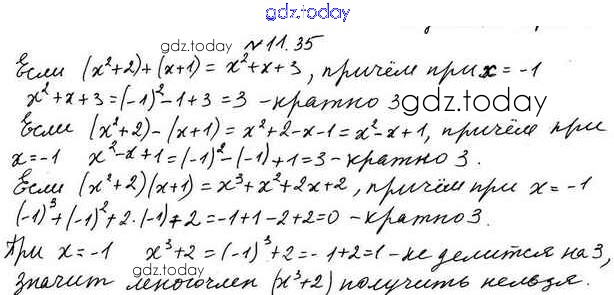 gdz.today
gdz.today №11.35
Если (x²+2)+(x+1) = x²+x+3, причём при x = -1
x²+x+3=(-1)²-1+3=3 -кратно 3
gdz.today
Если (x²+2)-(x+1)=x²+2-x-1=x²-x+1, причём при
x=-1 x²-x+1=(-1)²-(-1)+1=3-кратно 3.
gdz.today
Если (x²+2)(x+1)=x³+x²+2x+2, причём при x=-1
(-1)³+(-1)²+2·(-1)+2=-1+1-2+2=0-кратно 3.
При x=-1 x³+2=(-1)³+2=-1+2=1-не делится на 3,
gdz.today
значит многочлен (x³+2) получить нельзя.